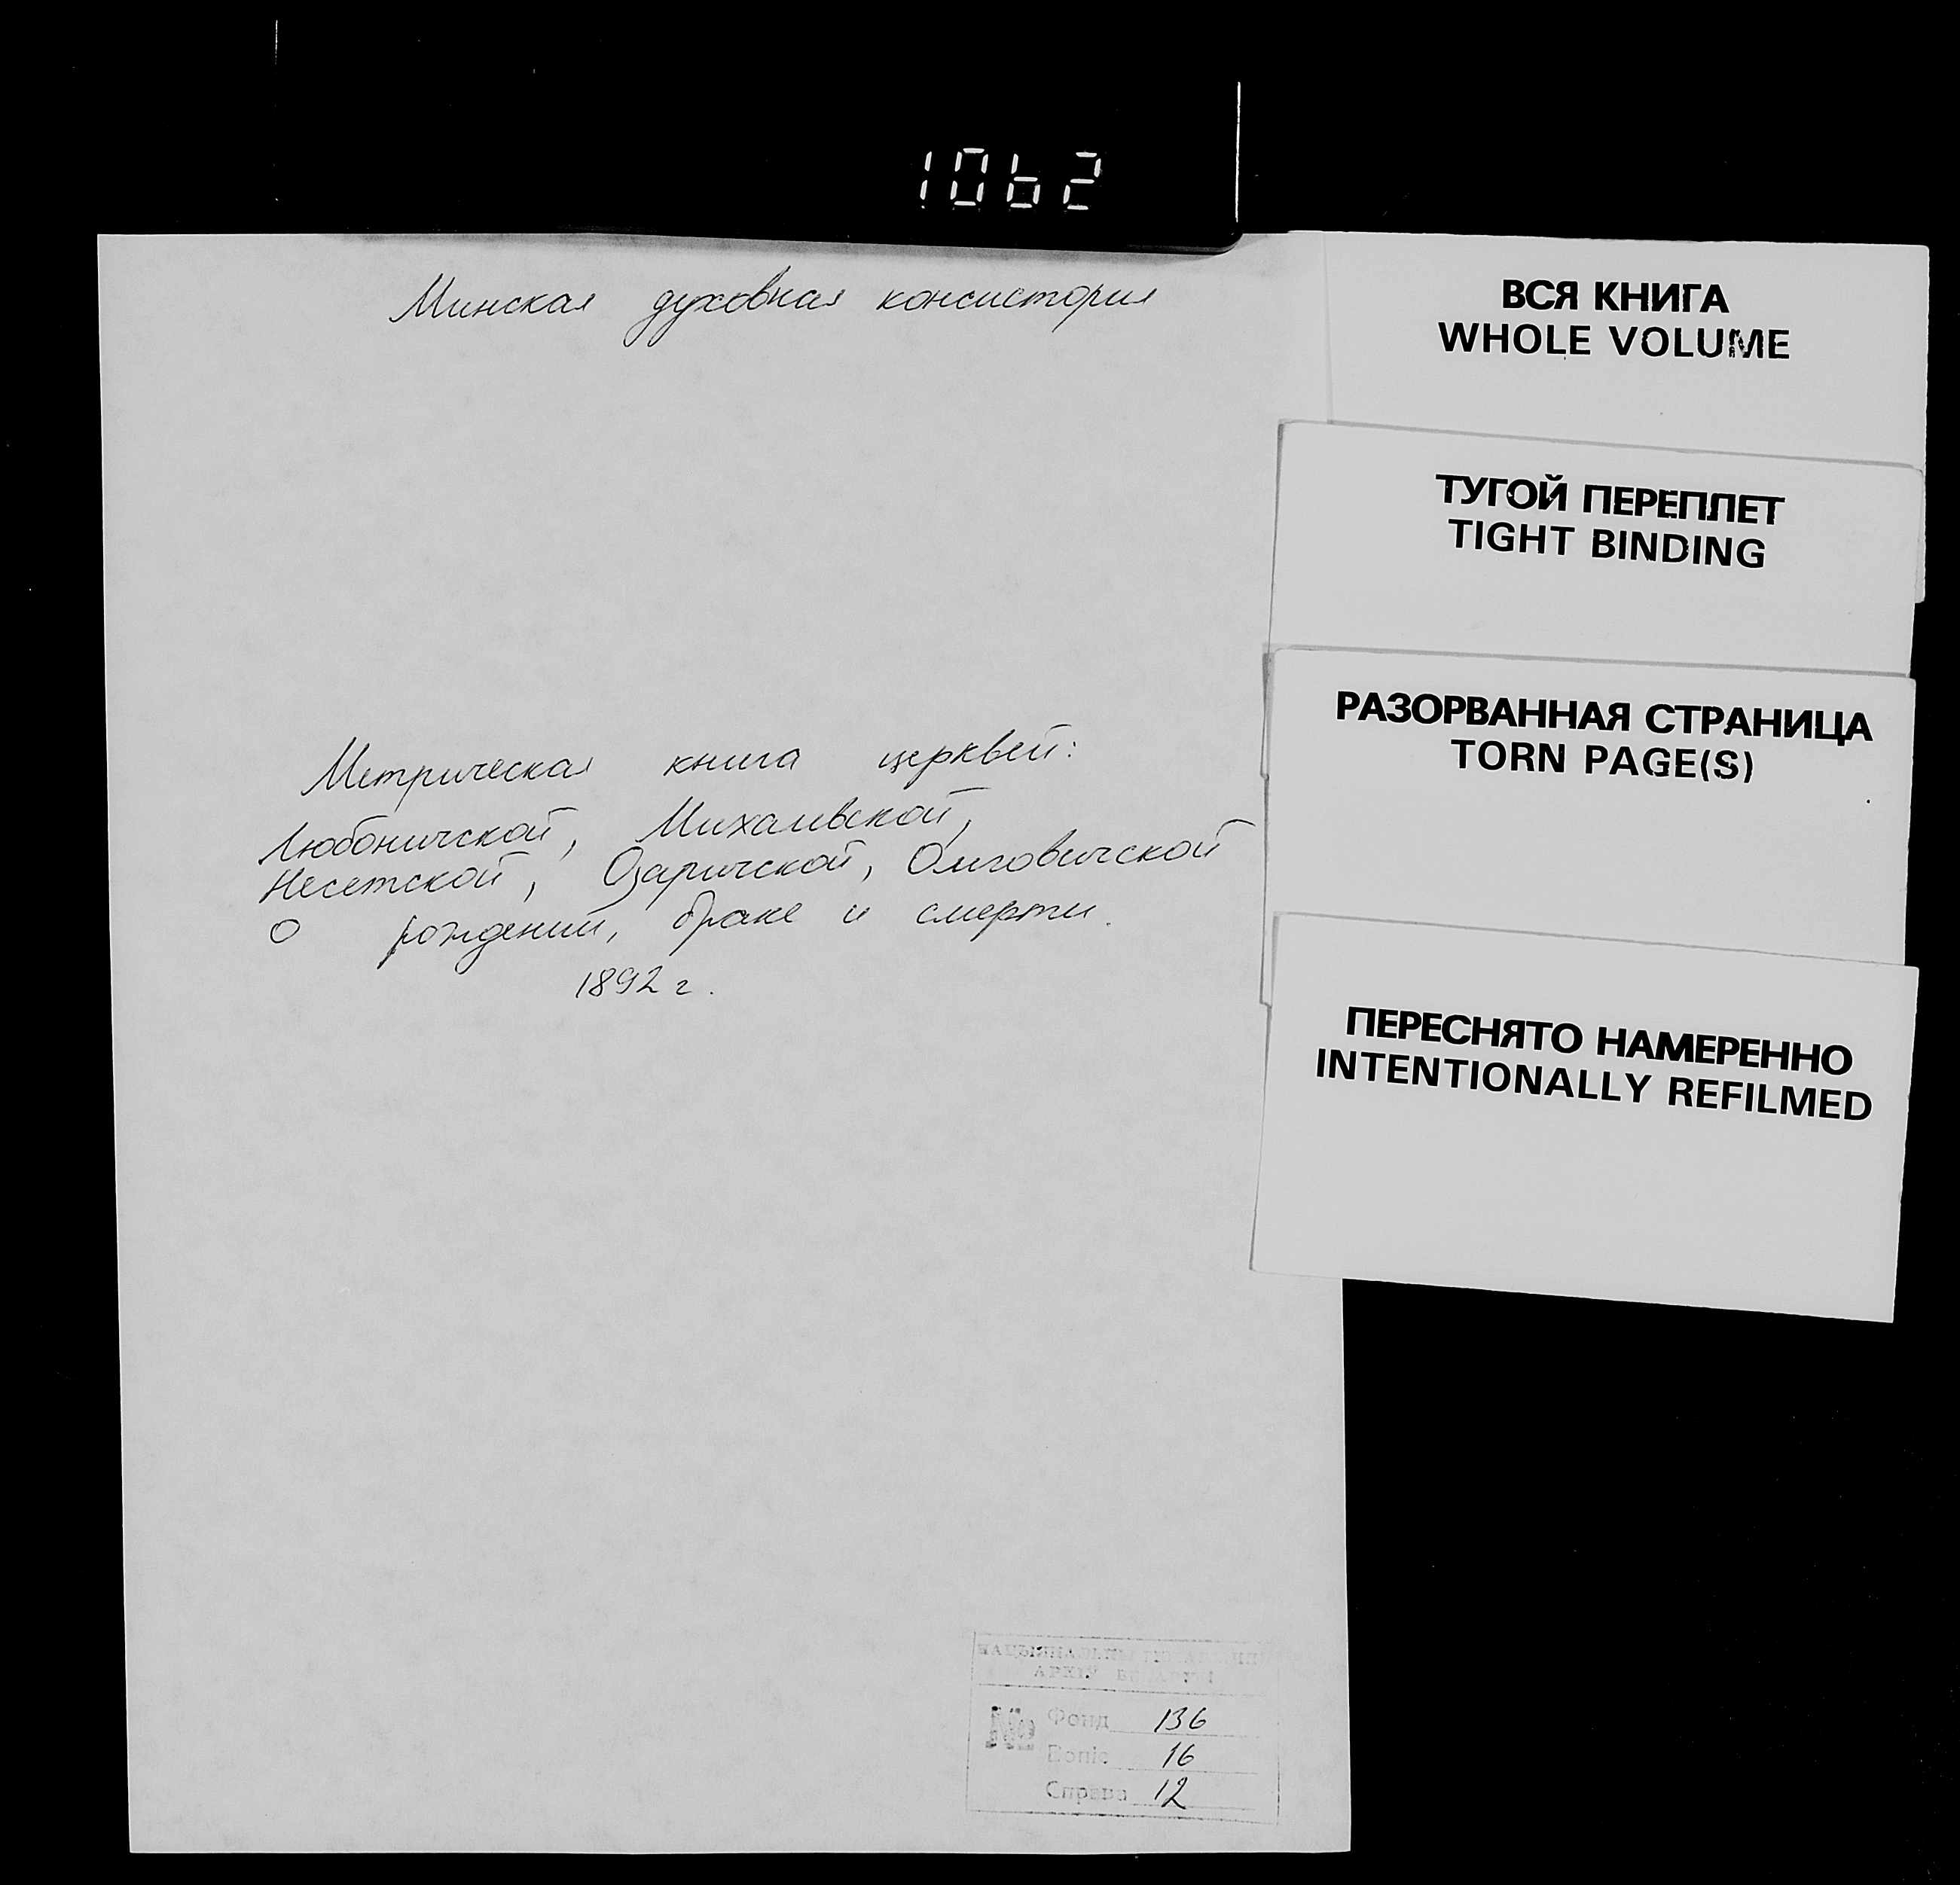 1062
Минская духовная консистория
Метрическая книга церквей:
Любоничской, Михалевской,
Несетской, Озаричской, Олговичской
о рождении, браке и смерти.
1892 г.
ВСЯ КНИГА
WHOLE VOLUME
ТУГОЙ ПЕРЕПЛЕТ
TIGHT BINDING
РАЗОРВАННАЯ СТРАНИЦА
TORN PAGE(S)
ПЕРЕСНЯТО НАМЕРЕННО
INTENTIONALLY REFILMED
АРХІЎ
№ Фонд 136
Вопіс 16
Справа 12